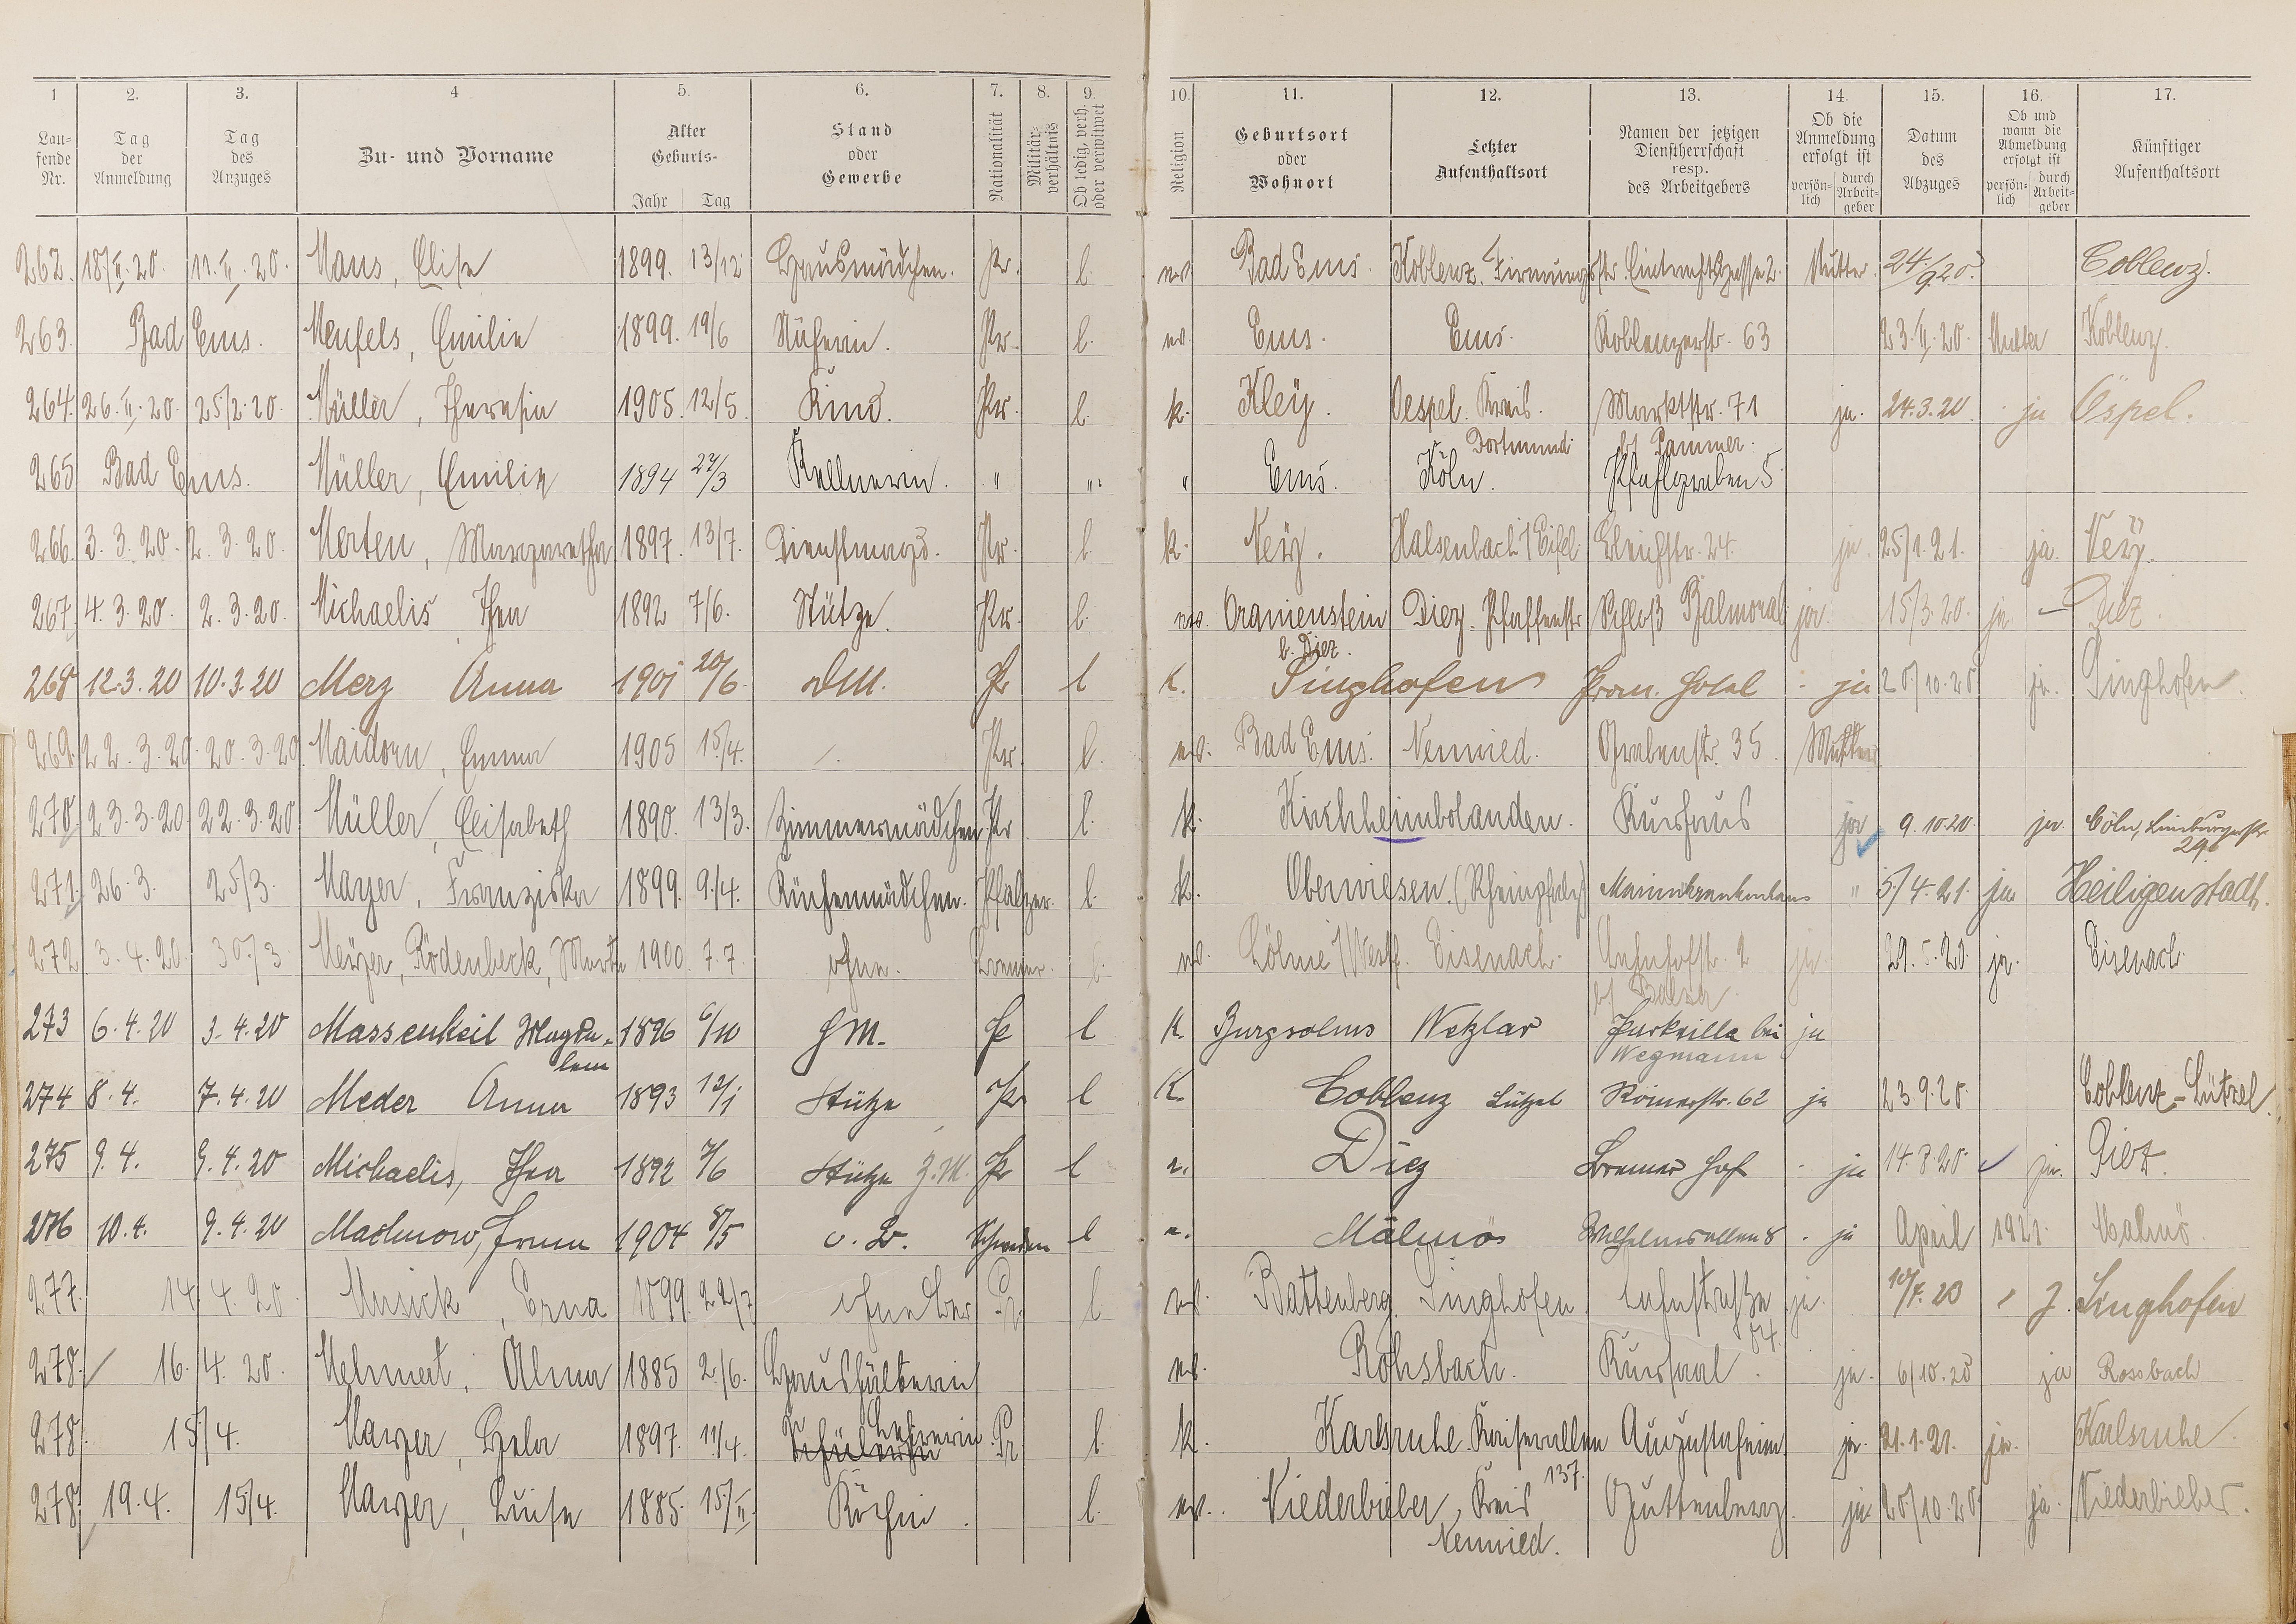 1 2. 3. 4 5. 6. 7. 8. 9. 10. 11. 12. 13. 14. 15. 16. 17.
Laufende Nr. Tag der Anmeldung Tag des Anzuges Zu- und Vorname Alter Geburts- Jahr Tag Stand oder Gewerbe Nationalität Militärverhältnis Ob ledig, verh. oder verwitwet Religion Geburtsort oder Wohnort Letzter Aufenthaltsort Namen der jetzigen Dienstherrschaft resp. des Arbeitgebers Ob die Anmeldung erfolgt ist persönlich durch Arbeitgeber Datum des Abzuges Ob und wann die Abmeldung erfolgt ist persönlich durch Arbeitgeber Künftiger Aufenthaltsort
262. 18/II.20. 11.II.20. Maus, Elise 1899. 13/12 Hausmädchen. Pr. l. ev. Bad Ems. Koblenz. Firmungstr. Eintrachtsgasse 2. Mutter. 24./9.20. Coblenz.
263. Bad Ems. Meufels, Emilie 1899. 19/6 Näherin. Pr. l. ev. Ems. Ems. Koblenzerstr. 63 23.II.20. Mutter Koblenz.
264. 26.II.20. 25/2.20. Müller, Theresia 1905. 12/5. Kind. Pr. l. k. Kley. Oespel. Kreis. Dortmund Marktstr. 71 bei Pammer. ja. 24.3.20. ja Öspel.
265 Bad Ems. Müller, Emilie 1894 27/3 Kellnerin. " " " Ems. Köln. Pfahlgraben 5
266. 3.3.20. 2.3.20. Merten, Margaretha 1897. 13/7. Dienstmagd. Pr. l. k. Ney. Halsenbach / Eifel. Bleichstr. 24. ja. 25/1.21. ja. Ney.
267. 4.3.20. 2.3.20. Michaelis Thea 1892 7/6. Stütze. Pr. l. ev. Oranienstein b. Diez. Diez. Pfaffenstr. Schloß Balmoral ja. 15/3.20. ja — Diez.
268 12.3.20 10.3.20 Merz Anna 1901 20/6 DM. Pr l k. Singhofen Prom. Hotel - ja 20/10.20 ja. Singhofen.
269. 22.3.20. 20.3.20 Maidorn, Emma 1905 15/4. Pr. l. ev. Bad Ems. Neuwied. Grabenstr. 35. Mutter
270. 23.3.20. 22.3.20 Müller, Elisabeth 1890. 13/3. Zimmermädchen Pr. l. k. Kirchheimbolanden. Kurhaus ja 9.10.20 ja. Cöln, Limburgerstr. 29
271. 26.3. 25/3. Mayer, Franziska 1899. 9./4. Küchenmädchen. Pfalzer. l. k. Oberwiesen. (Rheinpfalz) Marienkrankenhaus " 5/4.21. ja Heiligenstadt.
272 3.4.20. 30/3. Meyer, Rödenbeck, Marta 1900. 7.7. ohne. Bremer. l. ev. Löhne / Westf. Eisenach. Bahnhofstr. 2 bei Balzer. ja. 29.5.20. ja. Eisenach.
273 6.4.20 3.4.20 Massenkeil Magdalena 1896 6/10 HM. Pr l K. Burgsolms Wetzlar Parkvilla bei Wegmann ja
274 8.4. 7.4.20 Meder Anna 1893 12/1 Stütze Pr l K. Coblenz Lützel Römerstr. 62 ja 23.9.20. Coblenz-Lützel.
275 9.4. 9.4.20 Michaelis, Thea 1892 7/6 Stütze Z.M. Pr l e. Diez Bremer Hof - ja 14.8.20. ja. Diez.
276 10.4. 9.4.20 Machnow, 1904 8/5 o. B. Schweden l e. Malmös Wilhelmsallee 8 - ja April 1921. Malmö.
277. 14.4.20. Musick, Erna 1899. 22/7 ohne Ber Pr. l ev. Battenberg. Singhofen. Lahnstraße 64. ja. 10/7.20 J. Singhofen
278. 16.4.20. Mehnert, Alma 1885 2./6. Haushälterin ev. Rohsbach. Kursaal. ja. 6/10.20 ja Rossbach
278. 15/4. Mayer, Hela 1897. 11/4. Schülerin Lehrerin. Pr l. k. Karlsruhe. Kaiserallee 137. Augustaheim. ja. 21.1.21. ja. Karlsruhe.
278. 19.4. 15/4. Mayer, Luise 1885. 15/II. Köchin. l. ev. Niederbieber, Kreis Neuwied. Guttenberg. ja. 20/10.20 ja. Niederbieber.